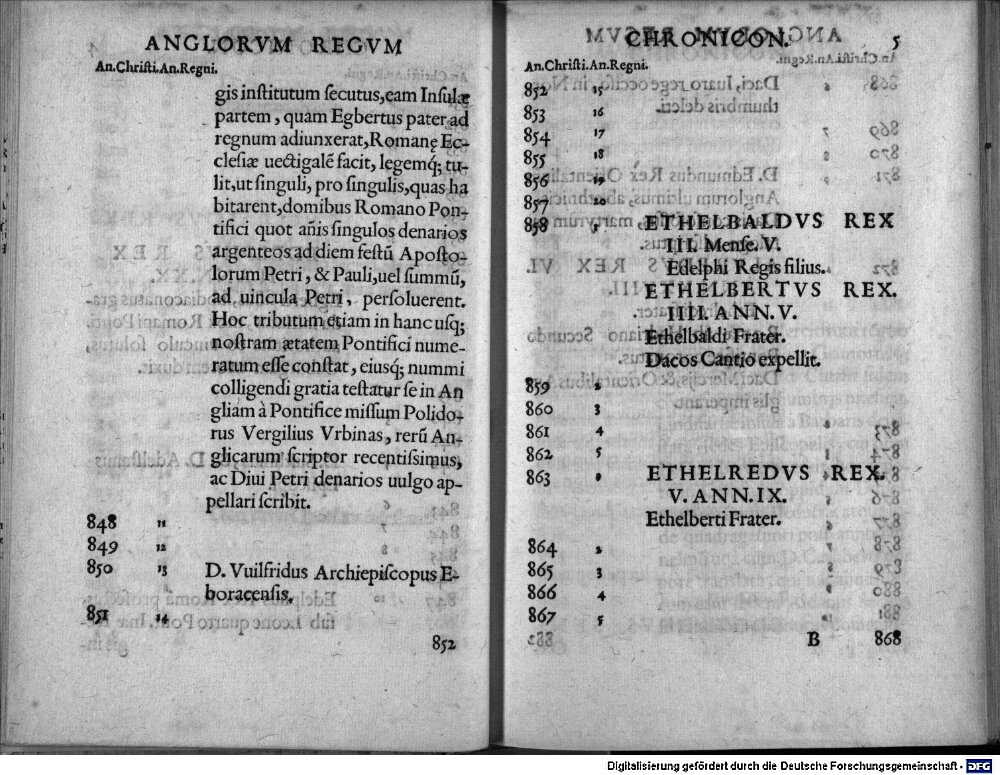 ANGLORVM REGVM
An.Christi.An.Regni.
gis institutum secutus, eam Insulæ
partem, quam Egbertus pater ad
regnum adiunxerat, Romanę Ec-
clesiæ uectigalẽ facit, legemq́; tu-
lit, ut singuli, pro singulis, quas ha
bitarent, domibus Romano Pon-
tifici quot añis singulos denarios
argenteos ad diem festũ Aposto-
lorum Petri, & Pauli, uel summũ,
ad uincula Petri, persoluerent.
Hoc tributum etiam in hanc usq;
nostram ætatem Pontifici nume-
ratum esse constat, eiusq́; nummi
colligendi gratia testatur se in An
gliam à Pontifice missum Polido-
rus Vergilius Vrbinas, rerũ An-
glicarum scriptor recentissimus,
ac Diui Petri denarios uulgo ap-
pellari scribit.
848 11
849 12
850 13 D. Vuilfridus Archiepiscopus E-
boracensis.
851 14
852
CHRONICON. 5
An.Christi.An.Regni.
852 15
853 16
854 17
855 18
856 19
857 20
858 1 ETHELBALDVS REX
III. Mense. V.
Edelphi Regis filius.
ETHELBERTVS REX.
IIII. ANN. V.
Ethelbaldi Frater.
Dacos Cantio expellit.
859 2
860 3
861 4
862 5
863 1 ETHELREDVS REX.
V. ANN. IX.
Ethelberti Frater.
864 2
865 3
866 4
867 5
B 868
Digitalisierung gefördert durch die Deutsche Forschungsgemeinschaft - DFG